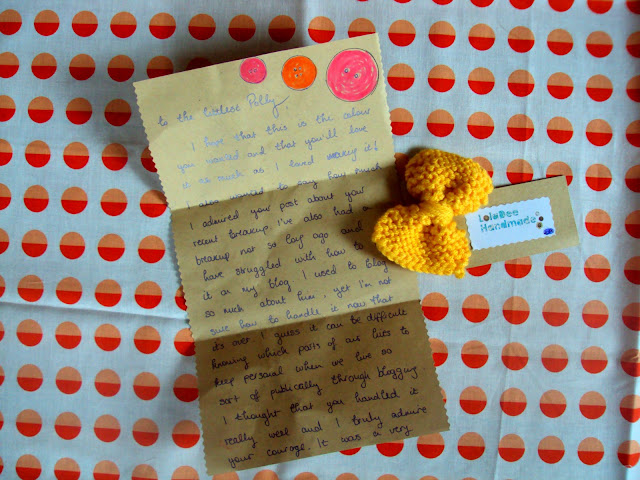 to the littlest Polly,
I hope that this is the colour
you wanted and that you'll love
it as much as I loved making it!
I also wanted to say how much
I admired your post about your
recent breakup. I've also had a
breakup not so long ago and
have struggled with how to
it on my blog. I used to blog
so much about him, yet I'm not
sure how to handle it now that
it's over. I guess it can be difficult
knowing which parts of our lives to
keep personal when we live so
sort of publically through blogging
I thought that you handled it
really well and I truly admire
your courage. It was a very
LolaDee
Handmade